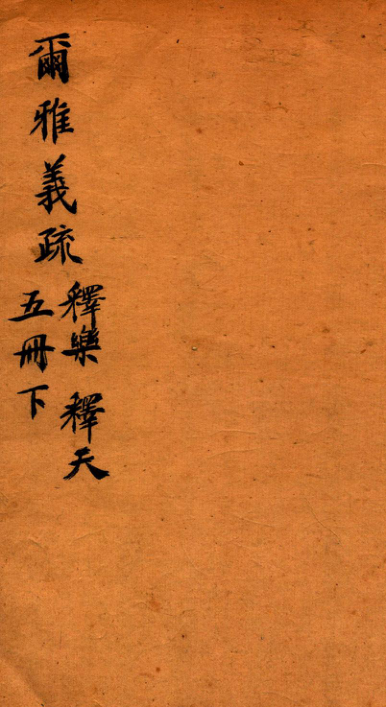 爾雅義疏
釋樂 釋天
五冊下